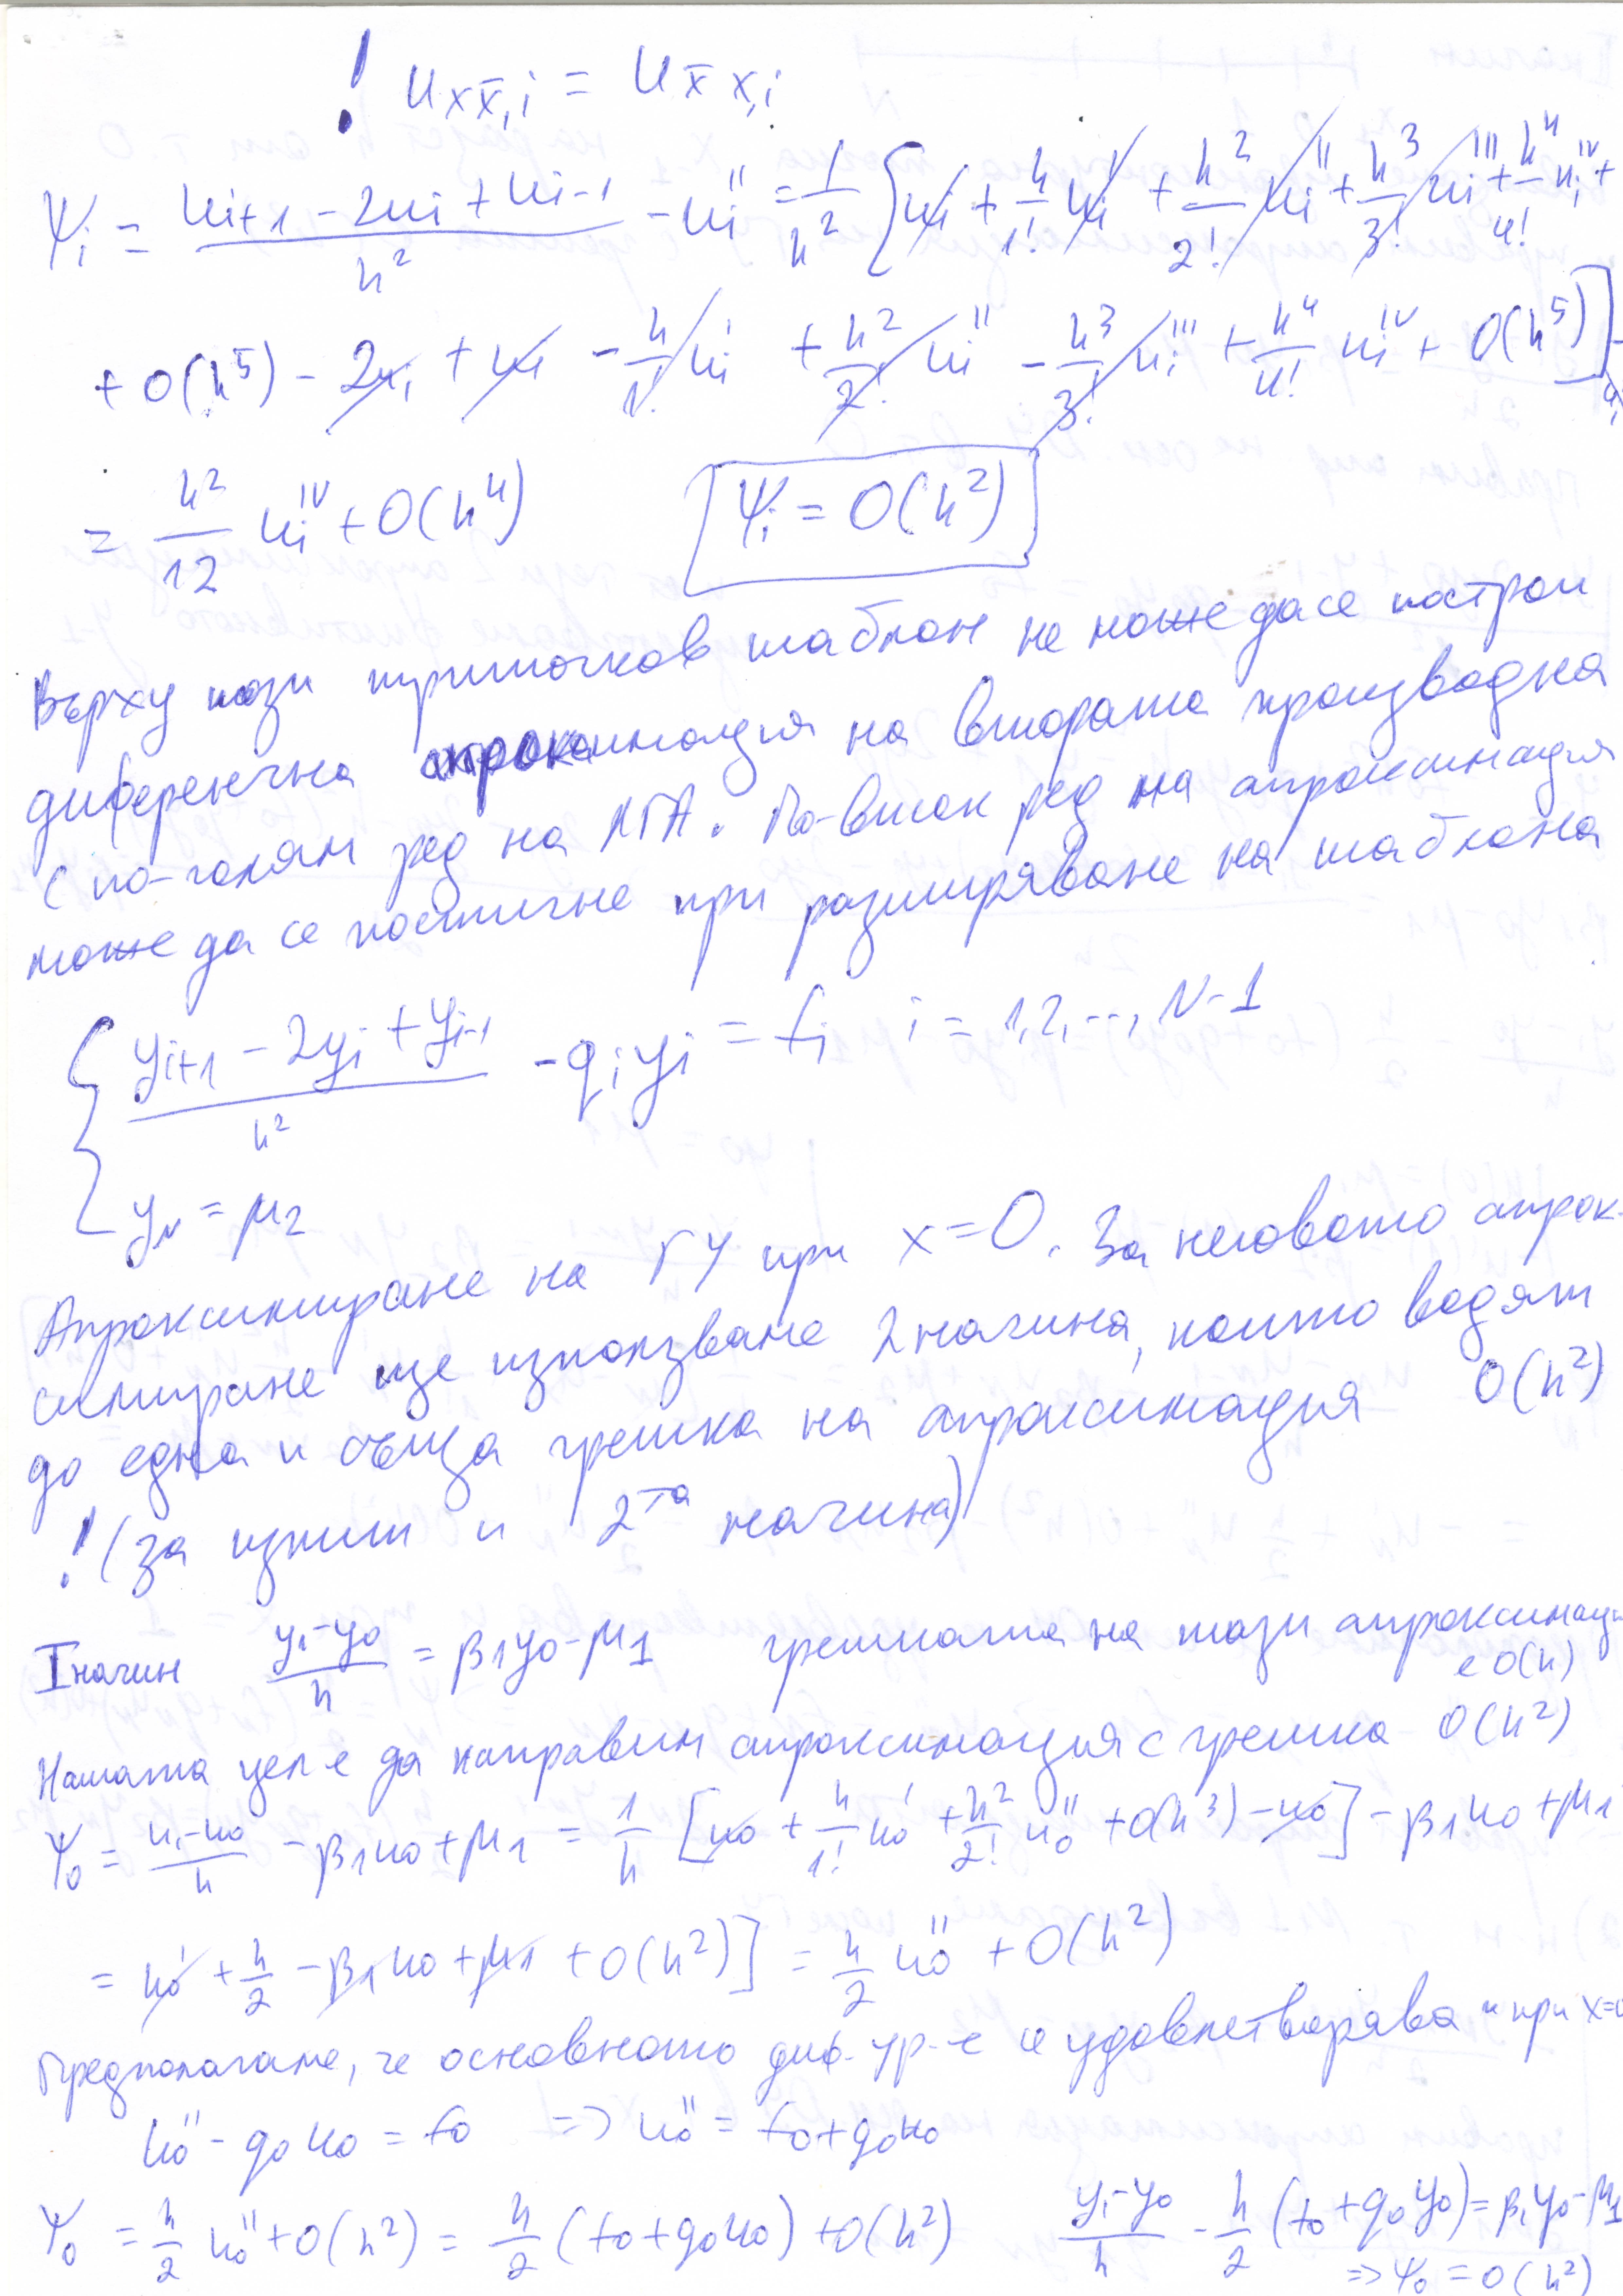 ! u_{x\bar{x},i} = u_{\bar{x}x,i}
Ψ_i = \frac{u_{i+1} - 2u_i + u_{i-1}}{h^2} - u_i'' = \frac{1}{h^2} [u_i + \frac{h}{1!} u_i' + \frac{h^2}{2!} u_i'' + \frac{h^3}{3!} u_i''' + \frac{h^4}{4!} u_i^{IV} +
+ O(h^5) - 2u_i + u_i - \frac{h}{1!} u_i' + \frac{h^2}{2!} u_i'' - \frac{h^3}{3!} u_i''' + \frac{h^4}{4!} u_i^{IV} + O(h^5)] -
= \frac{h^2}{12} u_i^{IV} + O(h^4) Ψ_i = O(h^2)
Върху този триточков шаблон не може да се построи
диференчна апроксимация на втората производна
с по-голям ред на ЛГА. По-висок ред на апроксимация
може да се постигне при разширяване на шаблона
\frac{y_{i+1} - 2y_i + y_{i-1}}{h^2} - q_i y_i = f_i i = 1,2,..., N-1
y_N = μ_2
Апроксимиране на ГУ при x=0. За неговото апрок-
симиране ще използваме 2 начина, които водят
до една и съща грешка на апроксимация O(h^2)
! (за изпит и 2^{та} начина)
I начин \frac{y_1 - y_0}{h} = β_1 y_0 - μ_1 грешката на тази апроксимаци
е O(h)
Нашата цел е да направим апроксимация с грешка O(h^2)
Ψ_0 = \frac{u_1 - u_0}{h} - β_1 u_0 + μ_1 = \frac{1}{h} [u_0 + \frac{h}{1!} u_0' + \frac{h^2}{2!} u_0'' + O(h^3) - u_0] - β_1 u_0 + μ_1
= u_0' + \frac{h}{2} - β_1 u_0 + μ_1 + O(h^2)] = \frac{h}{2} u_0'' + O(h^2)
Предполагаме, че основното диф. ур-е се удовлетворява и при x=0
u_0'' - q_0 u_0 = f_0 => u_0'' = f_0 + q_0 u_0
Ψ_0 = \frac{h}{2} u_0'' + O(h^2) = \frac{h}{2} (f_0 + q_0 u_0) + O(h^2) \frac{y_1 - y_0}{h} - \frac{h}{2} (f_0 + q_0 y_0) = β_1 y_0 - μ_1
=> Ψ_0 = O(h^2)